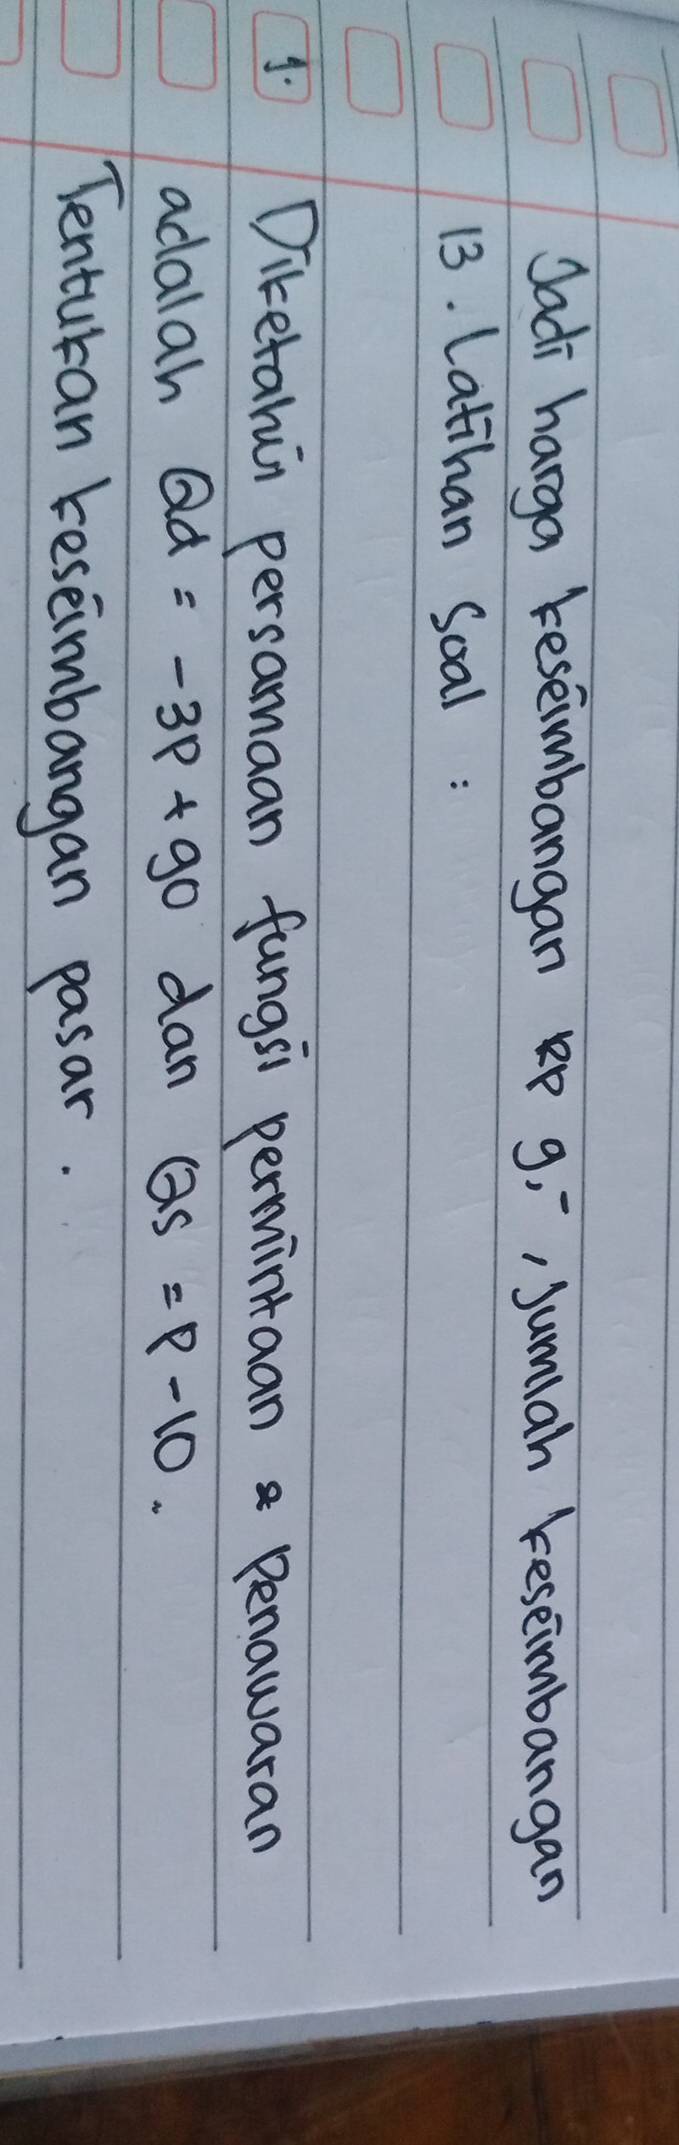 Jadi harga keseimbangan Rp 9,-, Jumlah keseimbangan
13. Latihan Soal :
1. Diketahui persamaan fungsi permintaan & Penawaran
adalah Qd = -3P + 90 dan Qs = P - 10.
Tentukan keseimbangan pasar.